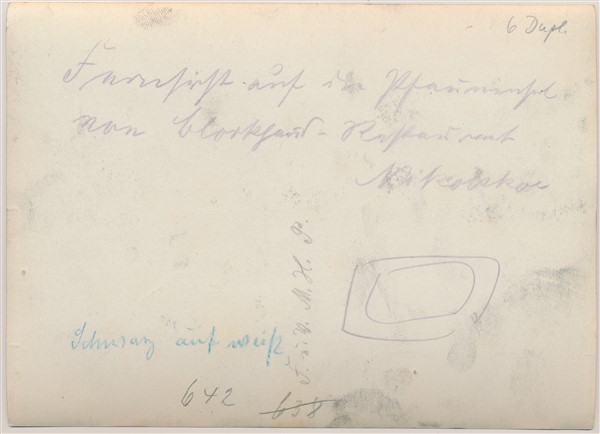 6 Dupl.
Fernsicht auf die Pfaueninsel
von Blockhaus-Restaurant
Nikolskoe
Schwarz auf weiß
642
638